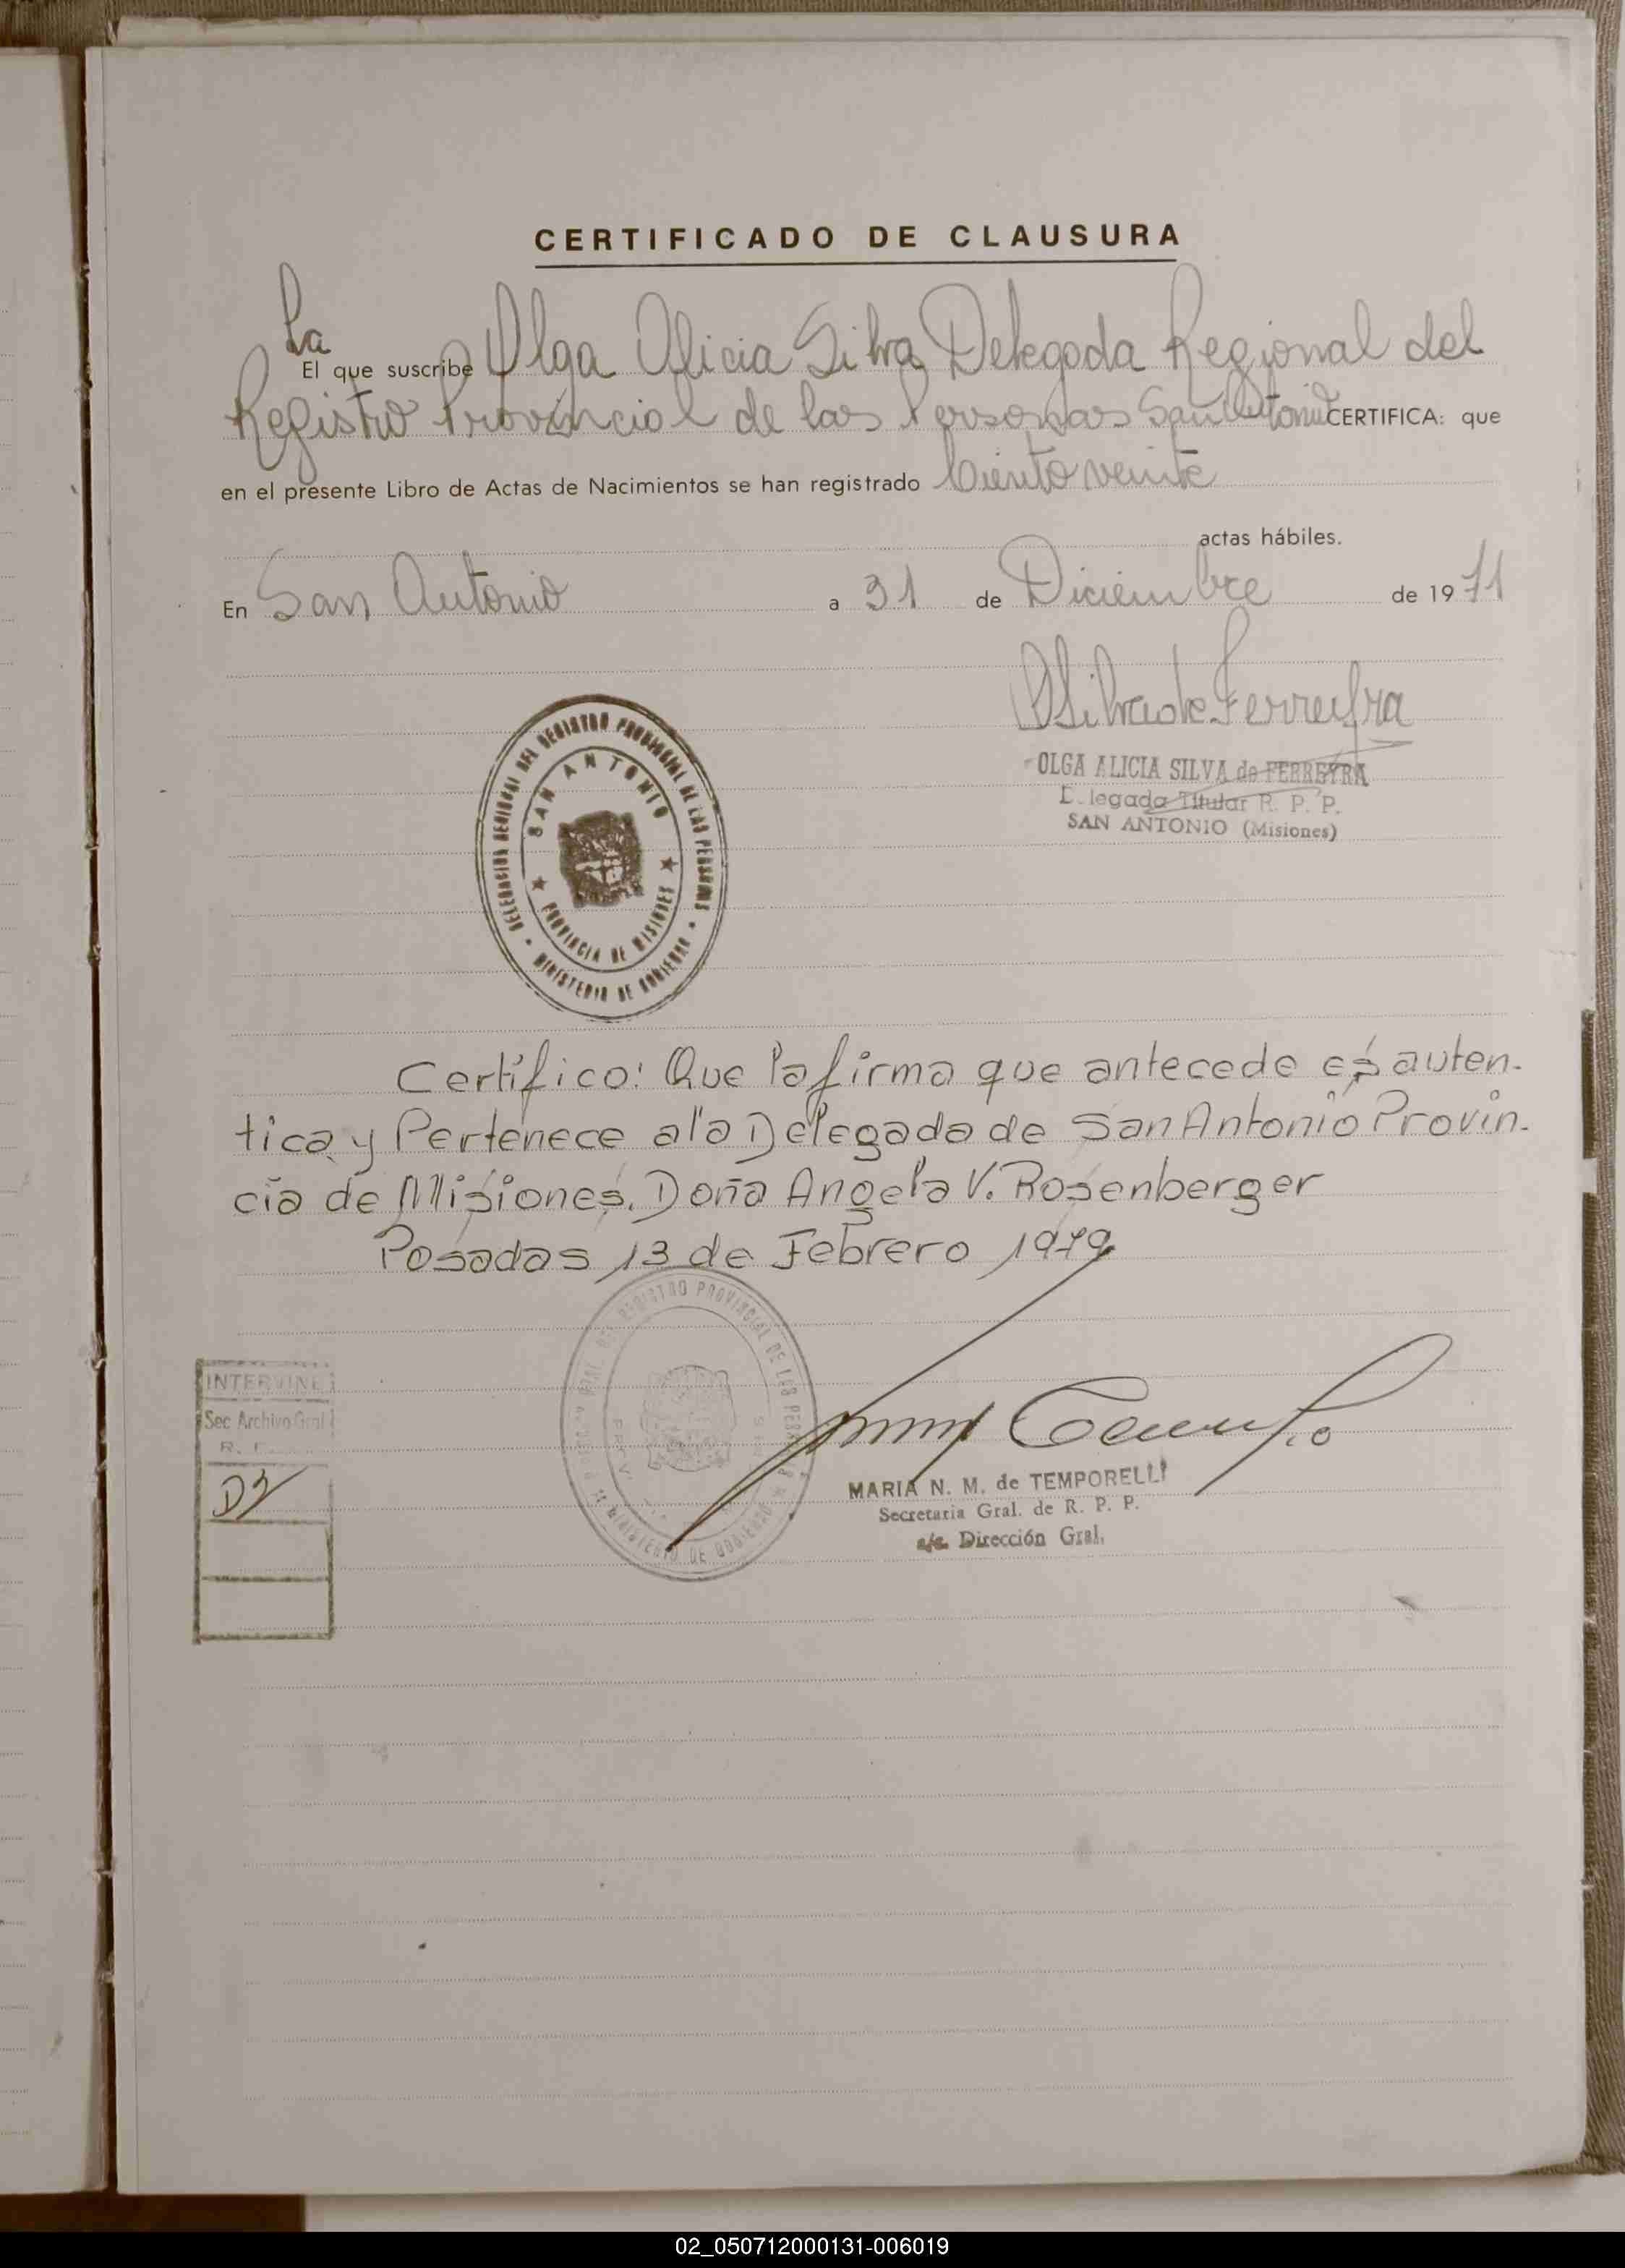 CERTIFICADO DE CLAUSURA
La
El que suscribe Olga Alicia Silva Delegada Regional del
Registro Provincial de las Personas San Antonio CERTIFICA: que
en el presente Libro de Actas de Nacimientos se han registrado Ciento veinte
actas hábiles.
En San Antonio a 31 de Diciembre de 1971
OSilva de Ferreyra
OLGA ALICIA SILVA de FERREYRA
Delegada Titular R. P. P.
SAN ANTONIO (Misiones)
DELEGACION REGIONAL DEL REGISTRO PROVINCIAL DE LAS PERSONAS
SAN ANTONIO
PROVINCIA DE MISIONES
MINISTERIO DE GOBIERNO
Certifico: Que la firma que antecede es auten-
tica y Pertenece a la Delegada de San Antonio Provin-
cia de Misiones. Doña Angela V. Rosenberger
Posadas 13 de Febrero 1979
REGISTRO PROVINCIAL DE LAS
MINISTERIO DE GOBIERNO
INTERVINE
Sec Archivo Gral
R.
MARIA N. M. de TEMPORELLI
Secretaria Gral. de R. P. P.
a/c. Dirección Gral.
02_050712000131-006019